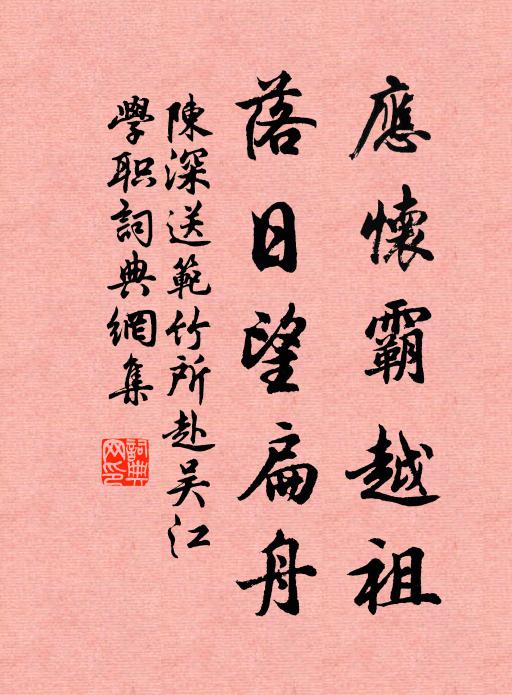 應懷霸越祖
落日望扁舟
陳深送範竹所赴吴江
學职詞典網集
詞典網印